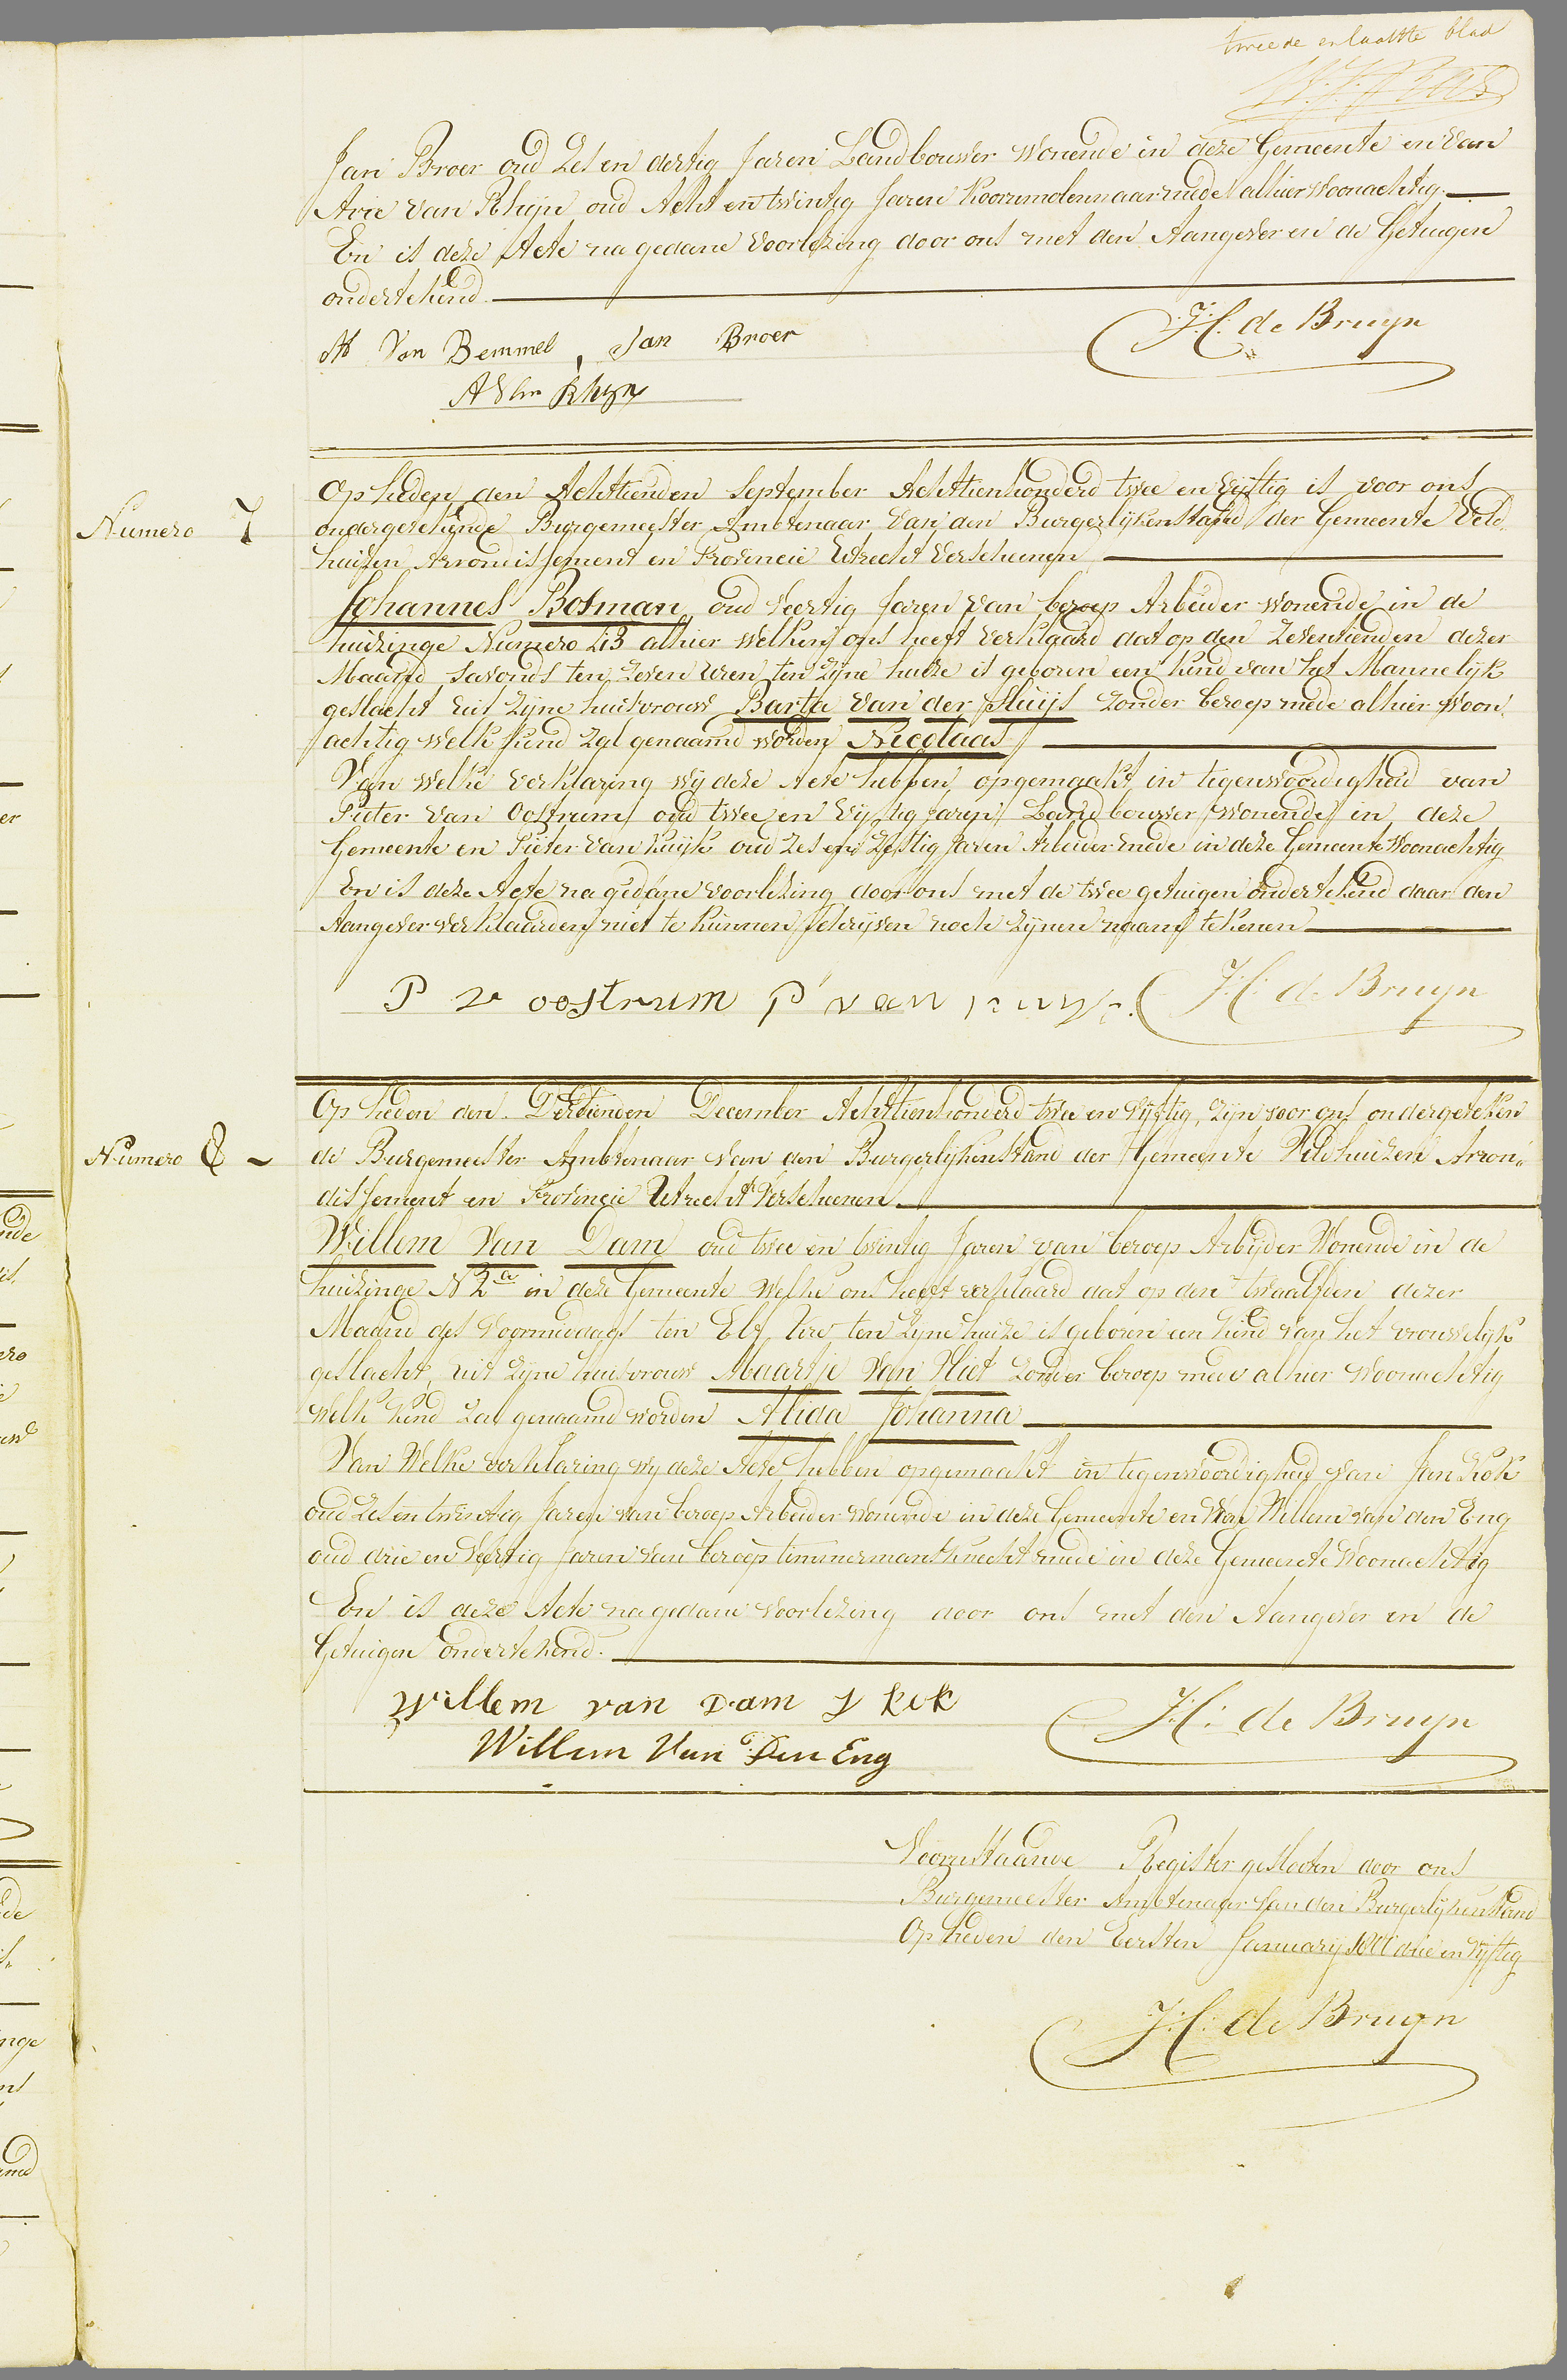 tweede en laatste blad
Jan Broer oud Zes en dertig Jaren Landbouwer Wonende in deze Gemeente en van
Arie van Rhijn oud Acht en twintig Jaren Koorenmolenaar mede alhier Woonachtig.
En is deze Acte na gedane Voorlezing door ons met den Aangever en de Getuigen
ondertekend.
Van Bemmel, Jan Broer
J.H. de Bruijn
A Van Rhijn
Numero 7
Op heden den Achttienden September Achttienhonderd twee en Vijftig is voor ons
ondergetekende Burgemeester Ambtenaar Van den Burgerlijken Stand der Gemeente Veld
huisen Arrondissement en Provincie Utrecht Verschenen
Johannes Bosman oud Veertig Jaren Van beroep Arbeider Wonende in de
huizinge Numero 43 alhier Welken ons heeft Verklaard dat op den Zeventienden dezer
Maand Savonds ten Zeven Uren ten Zijne huize is geboren een kind van het Mannelijk
geslacht Uit Zijne huisvrouw Barta van der Sluijs Zonder beroep mede alhier Woon
achtig Welk kind Zal genaamd worden Nicolaas
Van Welke Verklaring Wij deze Acte hebben opgemaakt in tegenwoordigheid van
Pieter van Oostrum oud twee en Vijftig jaren Landbouwer Wonende in deze
Gemeente en Pieter van Kuijk oud Zes en Zestig Jaren Arbeider mede in deze Gemeente Woonachtig
En is deze Acte na gedane voorlezing door ons met de twee getuigen ondertekend daar den
Aangever verklaarden niet te kunnen schrijven noch Zijnen naam tekenen
P v oostrum P van kuyk. J.H. de Bruijn
Numero 8
Op heden den Dertienden December Achttienhonderd twee en Vijftig, Zijn voor ons ondergeteken
de Burgemeester Ambtenaar van den Burgerlijken Stand der Gemeente Veldhuizen Arron„
dissement en Provincie Utrecht Verschenen
Willem Van Dam oud twee en twintig Jaren van beroep Arbijder Wonende in de
huizinge N 2a in deze Gemeente Welke ons heeft verklaard dat op den twaalfden dezer
Maand des Voormiddags ten Elf Ure ten Zijne huize is geboren een kind van het vrouwelijk
geslacht, uit Zijne huisvrouw Maartje Van Vliet Zonder beroep mede alhier Woonachtig
Welk kind Zal genaamd worden Alida Johanna
Van Welke verklaring wij deze Acte hebben opgemaakt in tegenwoordigheid van Jan Kok
oud Zes en twintig Jaren van beroep Arbeider Wonende in deze Gemeente en Van Willem van den Eng
oud drie en Veertig Jaren van beroep timmermansknecht mede in deze Gemeente Woonachtig
En is deze Acte na gedane voorlezing door ons met den Aangever en de
Getuigen ondertekend.
Willem van Dam J kok J.H. de Bruijn
Willem Van Den Eng
Voorenstaande Register gesloten door ons
Burgemeester Ambtenaar Van den Burgerlijken Stand
Op heden den Eersten Januarij 1800 drie en Vijftig
J.H. de Bruijn